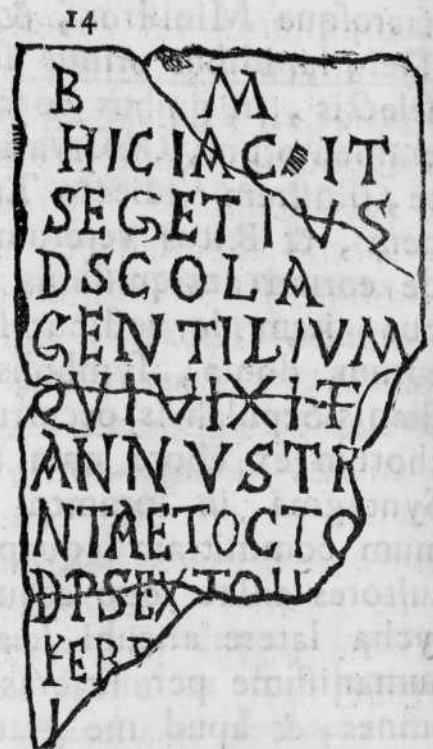 14
B M
HIC IAC IT
SEGETIVS
DSCOLA
GENTILIVM
QVI VIXIT
ANNVSTRI
NTAETOCTO
DPSEXTOU
FEBR